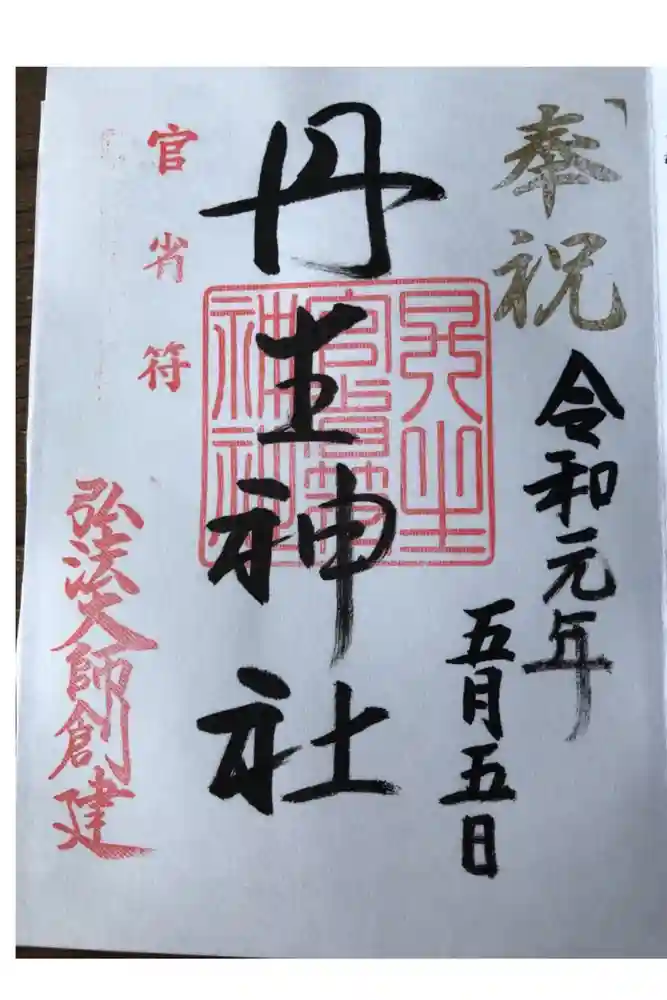 奉祝
令和元年
五月五日
丹生神社
丹生官省符神社
官省符
弘法大師創建